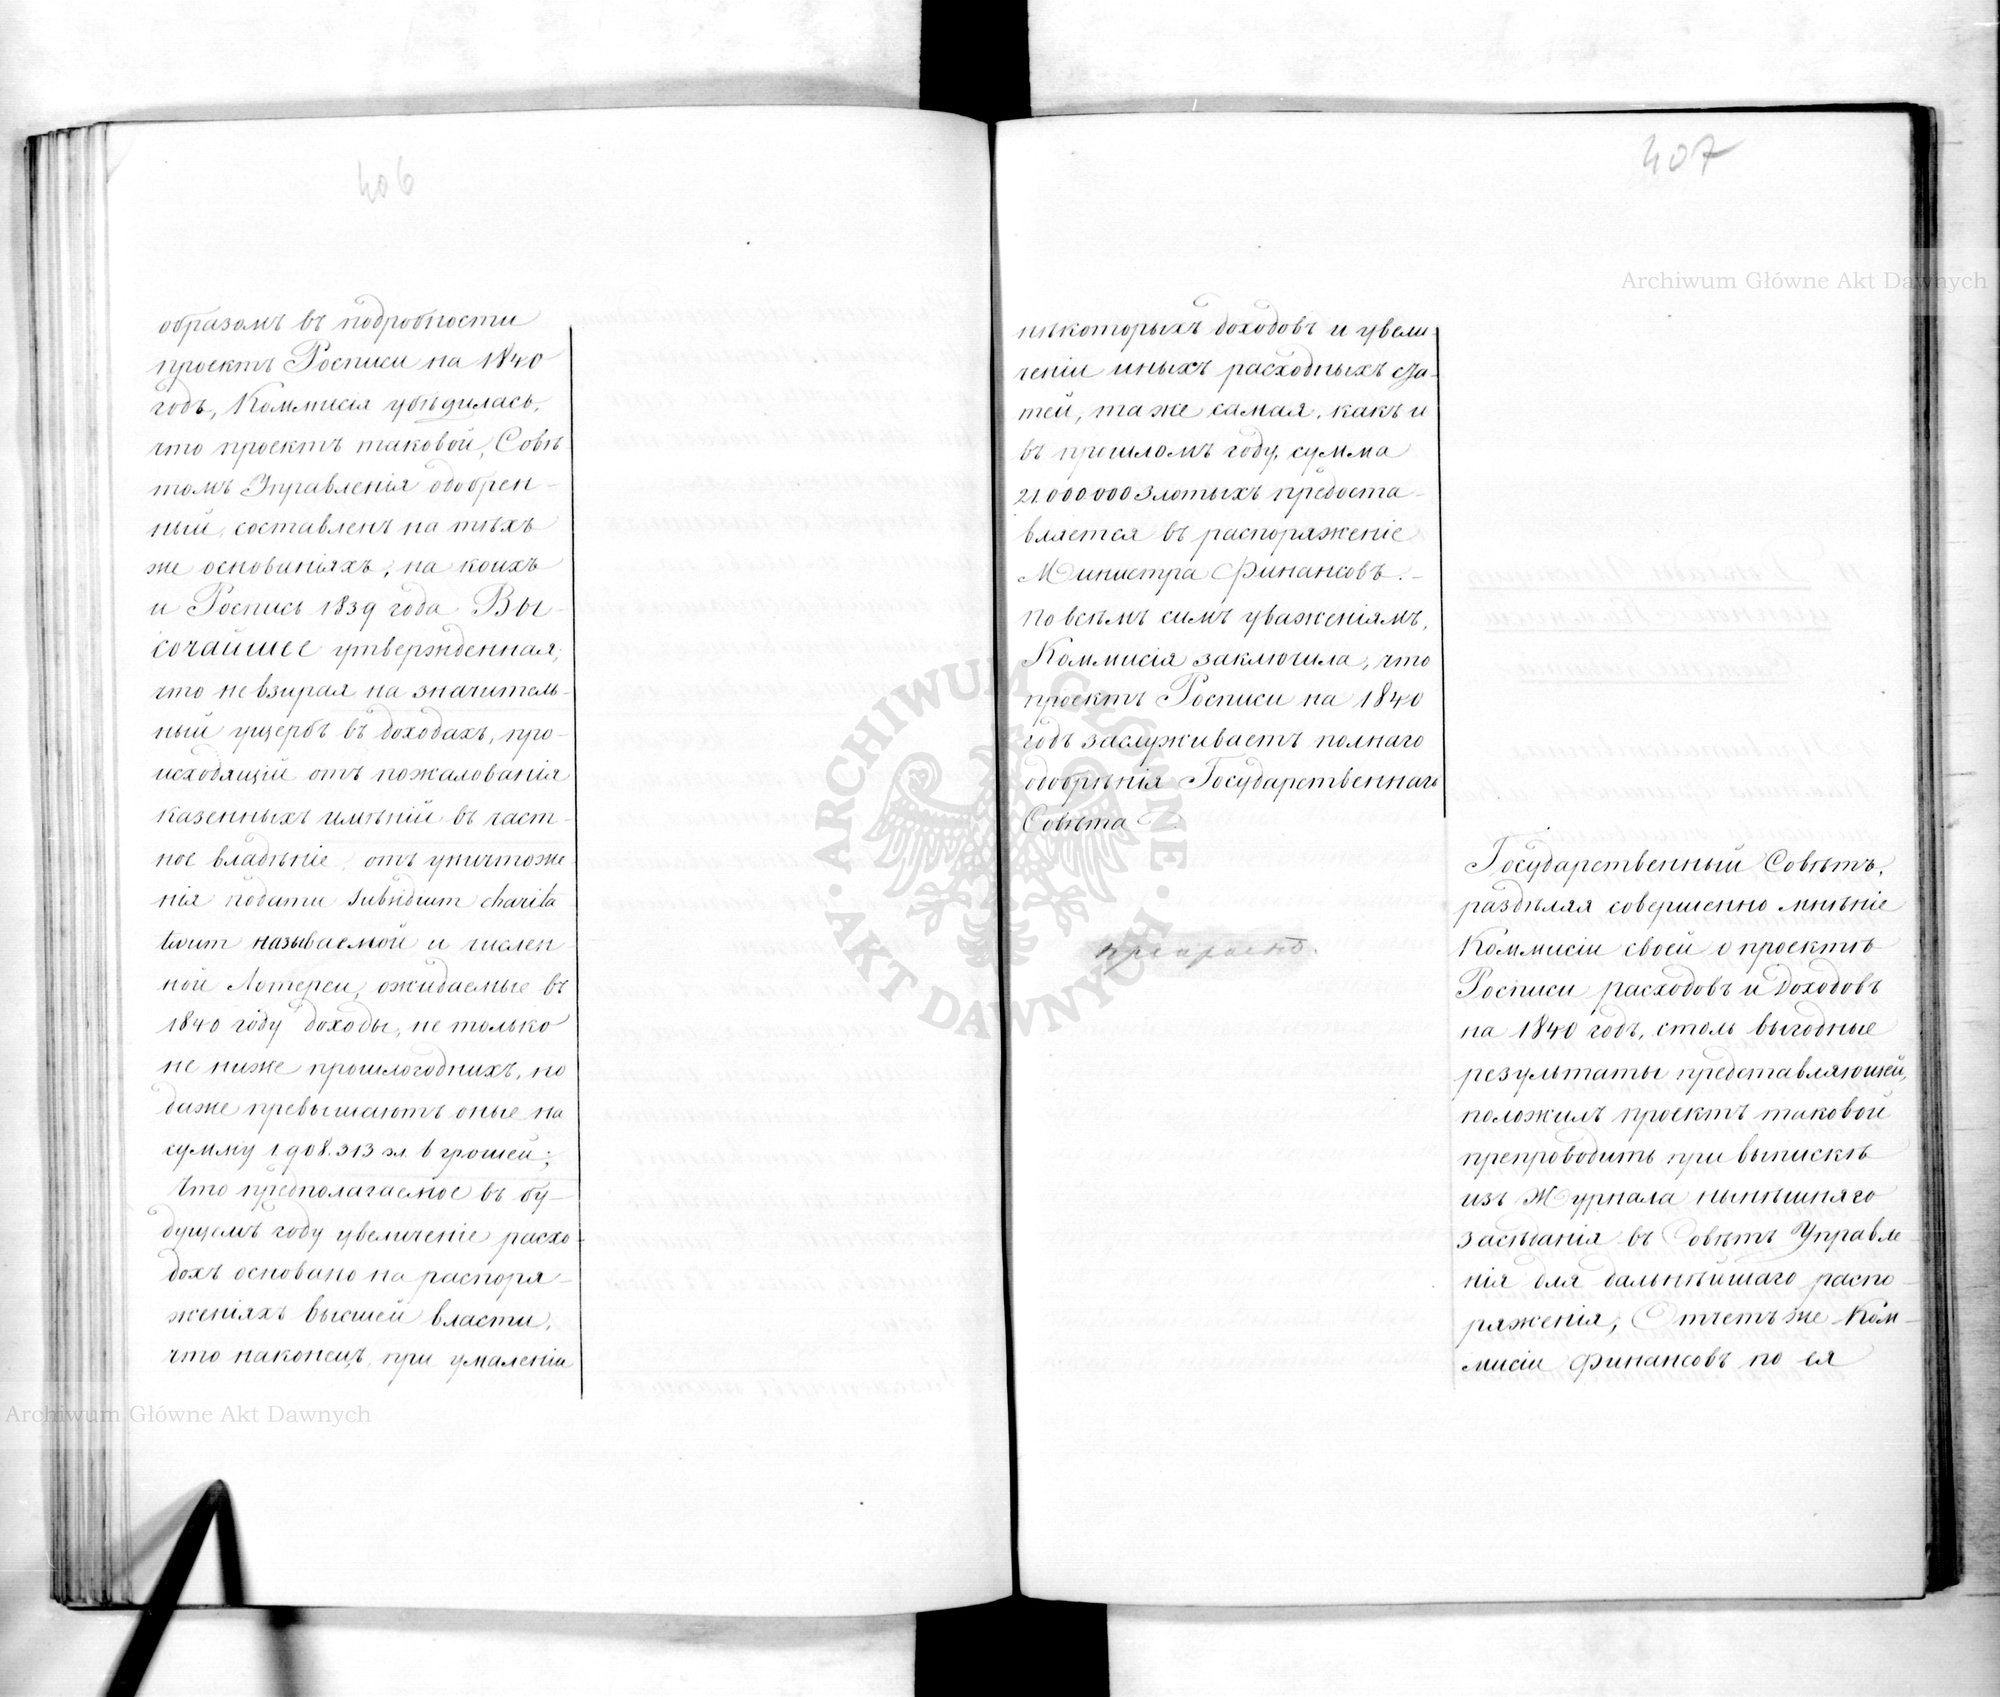 406
образомъ въ подробности
проектъ Росписи на 1840
годъ, Коммисія убѣдилась,
что проектъ таковой, Совѣ-
томъ Управленія одобрен-
ный, составленъ на тѣхъ
же основаніяхъ, на коихъ
и Роспись 1839 года Вы-
сочайшее утвержденная,
что невзирая на значитель-
ный ущербъ въ доходахъ, про-
исходящій отъ пожалованія
казенныхъ имѣній въ част-
ное владѣніе, отъ уничтоже-
нія подати subsidium charita-
tivum называемой и числен-
ной Лотереи, ожидаемые въ
1840 году доходы, не только
не ниже прошлогоднихъ, но
даже превышаютъ оные на
сумму 1908.313 зл. 6 грошей;
Что предполагаемое въ бу-
дущемъ году увеличеніе расхо-
довъ основано на распоря-
женіяхъ высшей власти,
что наконецъ, при умаленіи
407
нѣкоторыхъ доходовъ и увели-
ченіи иныхъ расходныхъ ста-
тей, таже самая, какъ и
въ прошломъ году, сумма
21.000.000 Злотыхъ предоста-
вляется въ распоряженіе
Министра Финансовъ.-
По всѣмъ симъ уваженіямъ,
Коммисія заключила, что
проектъ Росписи на 1840
годъ заслуживаетъ полнаго
одобрѣнія Государственнаго
Совѣта
Государственный Совѣтъ,
раздѣляя совершенно мнѣніе
Коммисіи своей о проектѣ
Росписи расходовъ и Доходовъ
на 1840 годъ, столь выгодные
результаты представляющей,
положилъ проектъ таковой
препроводить при выпискѣ
изъ Журнала нынѣшняго
засѣданія въ Совѣтъ Управле-
нія для дальнѣйшаго распо-
ряженія; Отчетъ же Ком-
мисіи Финансовъ по ея
Archiwum Główne Akt Dawnych
Archiwum Główne Akt Dawnych
ARCHIWUM GŁÓWNE · AKT DAWNYCH ·